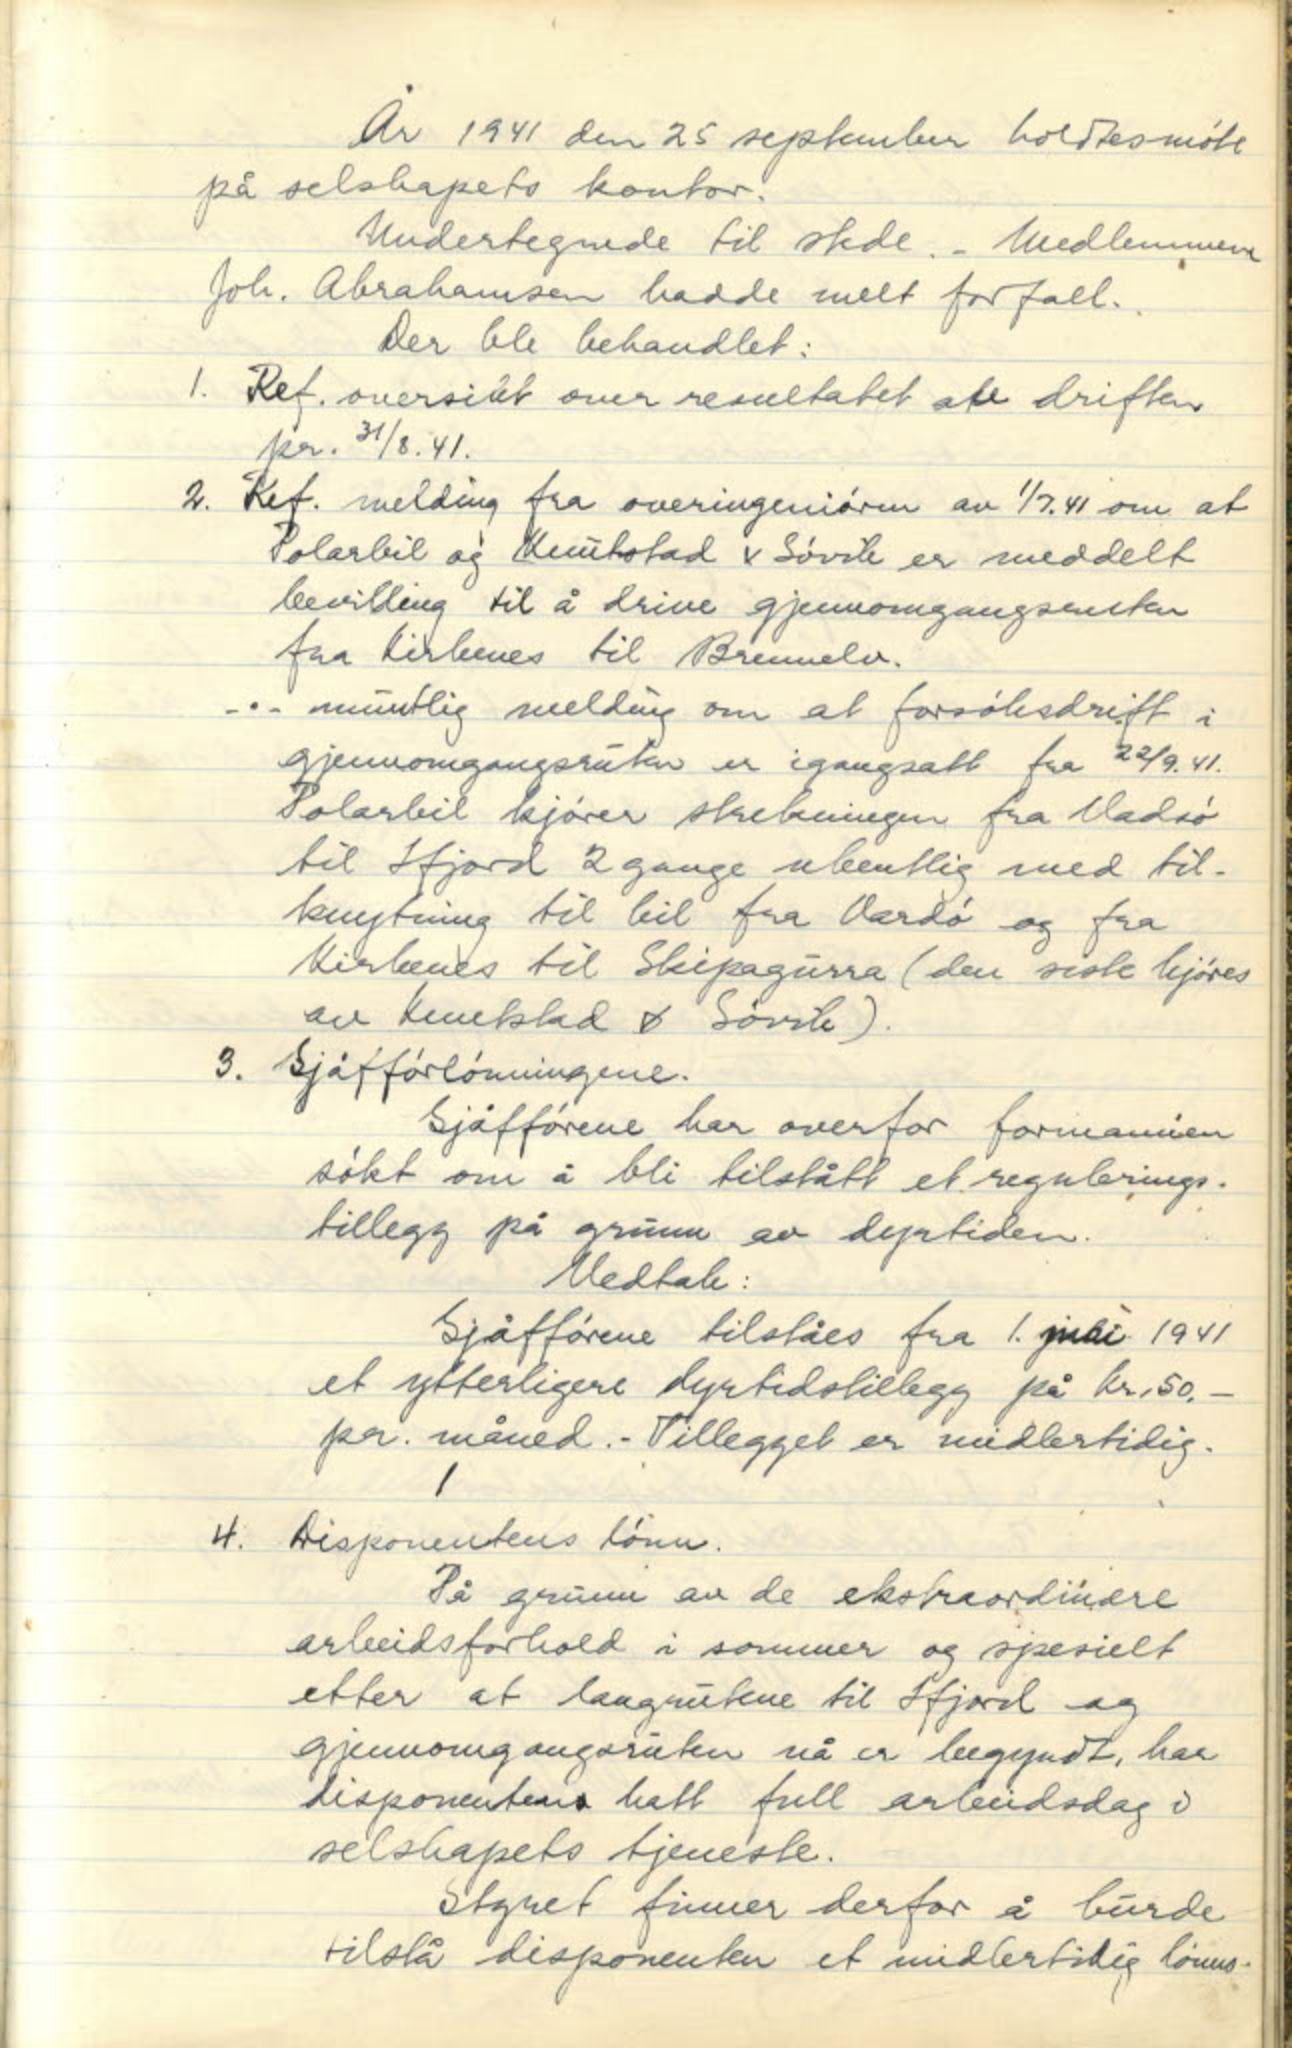 År 1941 den 25 september holdtes møte
på selskapets kontor.
Undertegnede til stede. - Medlemmene
Joh. Abrahamsen hadde melt forfall.
Der ble behandlet:
1. Ref. oversikt over resultatet av driften
pr. 31/8.41.
2. Ref. melding fra overingeniøren av 1/7.41 om at
Polarbil og Knutstad & Søvik er meddelt
bevilling til å drive gjennomgangsruten
fra Kirkenes til Brennelv.
-"- muntlig melding om at forsøksdrift i
gjennomgangsruten er igangsatt fra 22/9.41.
Polarbil kjører strekningen fra Vadsø
til Ifjord 2 gange ukentlig med til-
knytning til bil fra Vardø og fra
Kirkenes til Skipagurra (den siste kjøres
av Knutstad & Søvik).
3. Sjåfførlønningene.
Sjåfførene har overfor formannen
søkt om å bli tilstått et regulerings-
tillegg på grunn av dyrtiden.
Vedtak:
Sjåfførene tilståes fra 1. juli 1941
et ytterligere dyrtidstillegg på kr. 50.-
pr. måned. - Tillegget er midlertidig.
4. Disponentens lønn.
På grunn av de ekstraordinære
arbeidsforhold i sommer og spesielt
etter at langrutene til Ifjord og
gjennomgangsruten nå er begyndt, har
disponenten hatt full arbeidsdag i
selskapets tjeneste.
Styret finner derfor å burde
tilstå disponenten et midlertidig lønns-